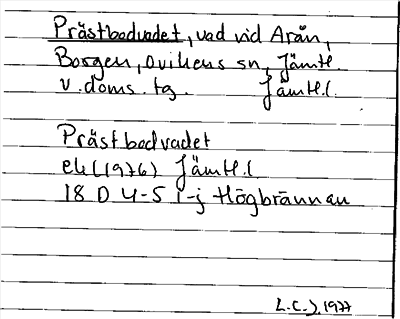 Prästbodvadet, vad vid Arån,
Borgen, Ovikens sn, Jämtl.
v. doms. tg. Jämtl.l.
Prästbodvadet
ek (1976) Jämtl.l
18 D 4-5 i-j Högbrännan
L.C.J, 1977